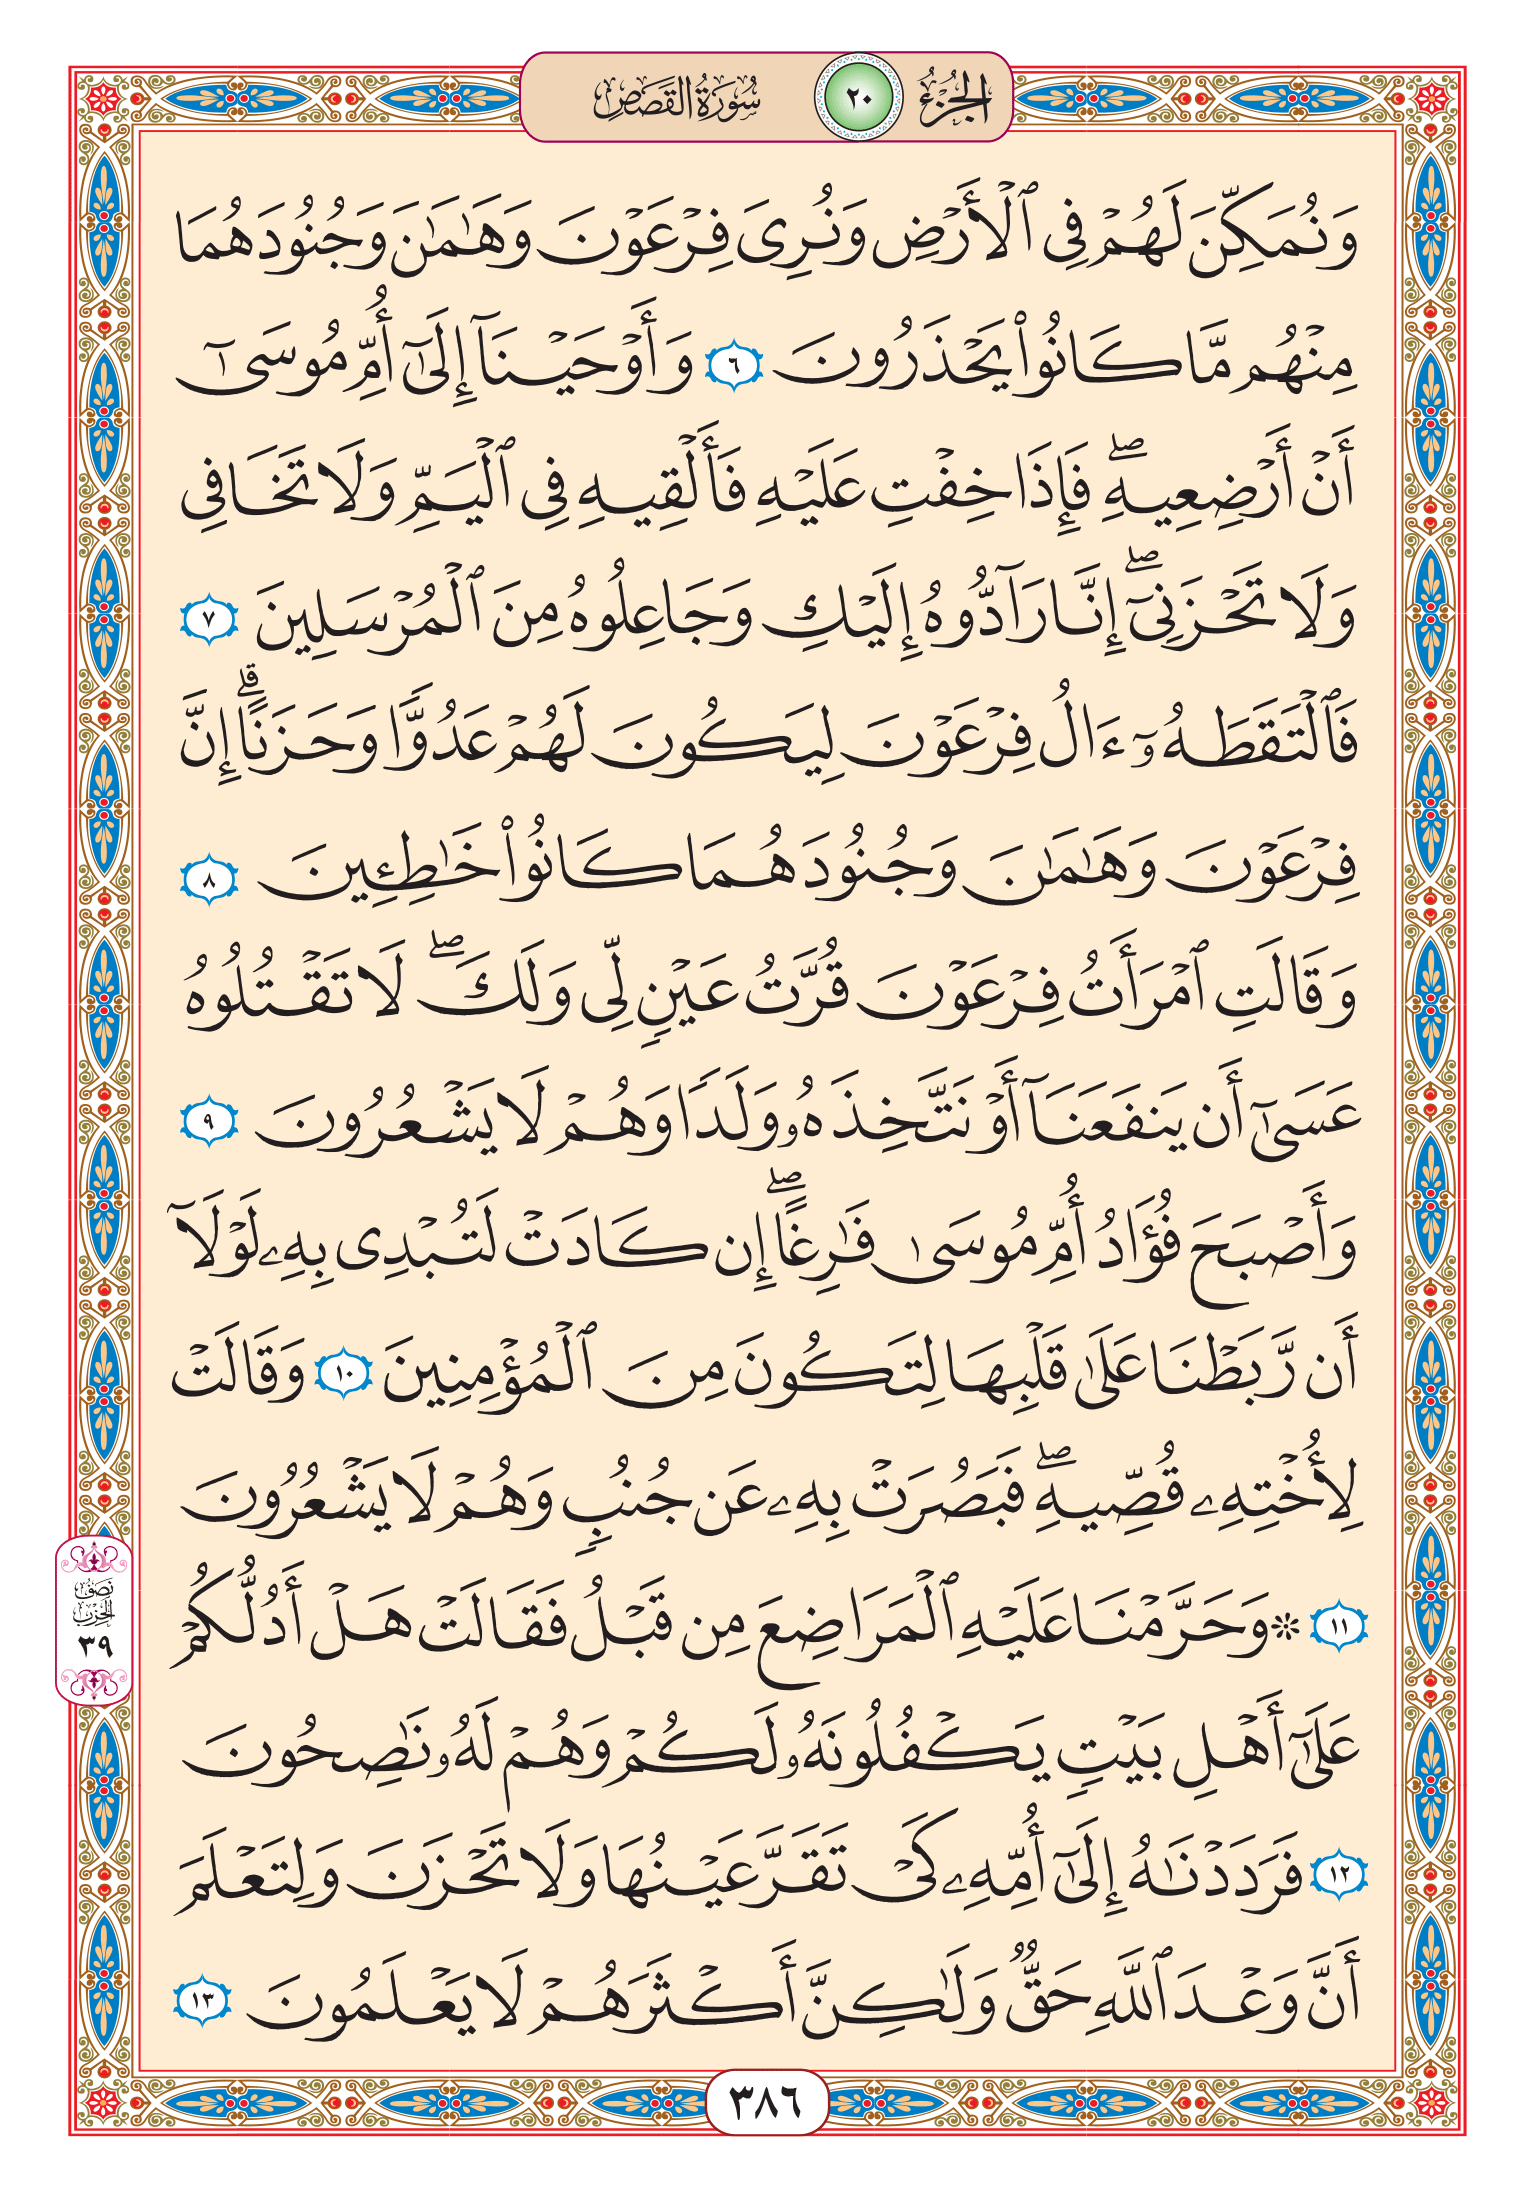 الجزء ٢٠ سورة القصص
وَنُمَكِّنَ لَهُمْ فِى ٱلْأَرْضِ وَنُرِىَ فِرْعَوْنَ وَهَٰمَٰنَ وَجُنُودَهُمَا
مِنْهُم مَّا كَانُوا۟ يَحْذَرُونَ ٦ وَأَوْحَيْنَآ إِلَىٰٓ أُمِّ مُوسَىٰٓ
أَنْ أَرْضِعِيهِ ۖ فَإِذَا خِفْتِ عَلَيْهِ فَأَلْقِيهِ فِى ٱلْيَمِّ وَلَا تَخَافِى
وَلَا تَحْزَنِىٓ ۖ إِنَّا رَآدُّوهُ إِلَيْكِ وَجَاعِلُوهُ مِنَ ٱلْمُرْسَلِينَ ٧
فَٱلْتَقَطَهُۥٓ ءَالُ فِرْعَوْنَ لِيَكُونَ لَهُمْ عَدُوًّا وَحَزَنًا ۗ إِنَّ
فِرْعَوْنَ وَهَٰمَٰنَ وَجُنُودَهُمَا كَانُوا۟ خَٰطِـِٔينَ ٨
وَقَالَتِ ٱمْرَأَتُ فِرْعَوْنَ قُرَّتُ عَيْنٍ لِّى وَلَكَ ۖ لَا تَقْتُلُوهُ
عَسَىٰٓ أَن يَنفَعَنَآ أَوْ نَتَّخِذَهُۥ وَلَدًا وَهُمْ لَا يَشْعُرُونَ ٩
وَأَصْبَحَ فُؤَادُ أُمِّ مُوسَىٰ فَٰرِغًا ۖ إِن كَادَتْ لَتُبْدِى بِهِۦ لَوْلَآ
أَن رَّبَطْنَا عَلَىٰ قَلْبِهَا لِتَكُونَ مِنَ ٱلْمُؤْمِنِينَ ١٠ وَقَالَتْ
لِأُخْتِهِۦ قُصِّيهِ ۖ فَبَصُرَتْ بِهِۦ عَن جُنُبٍ وَهُمْ لَا يَشْعُرُونَ
١١ ۞ وَحَرَّمْنَا عَلَيْهِ ٱلْمَرَاضِعَ مِن قَبْلُ فَقَالَتْ هَلْ أَدُلُّكُمْ
نصف
الحزب
٣٩
عَلَىٰٓ أَهْلِ بَيْتٍ يَكْفُلُونَهُۥ لَكُمْ وَهُمْ لَهُۥ نَٰصِحُونَ
١٢ فَرَدَدْنَٰهُ إِلَىٰٓ أُمِّهِۦ كَىْ تَقَرَّ عَيْنُهَا وَلَا تَحْزَنَ وَلِتَعْلَمَ
أَنَّ وَعْدَ ٱللَّهِ حَقٌّ وَلَٰكِنَّ أَكْثَرَهُمْ لَا يَعْلَمُونَ ١٣
٣٨٦